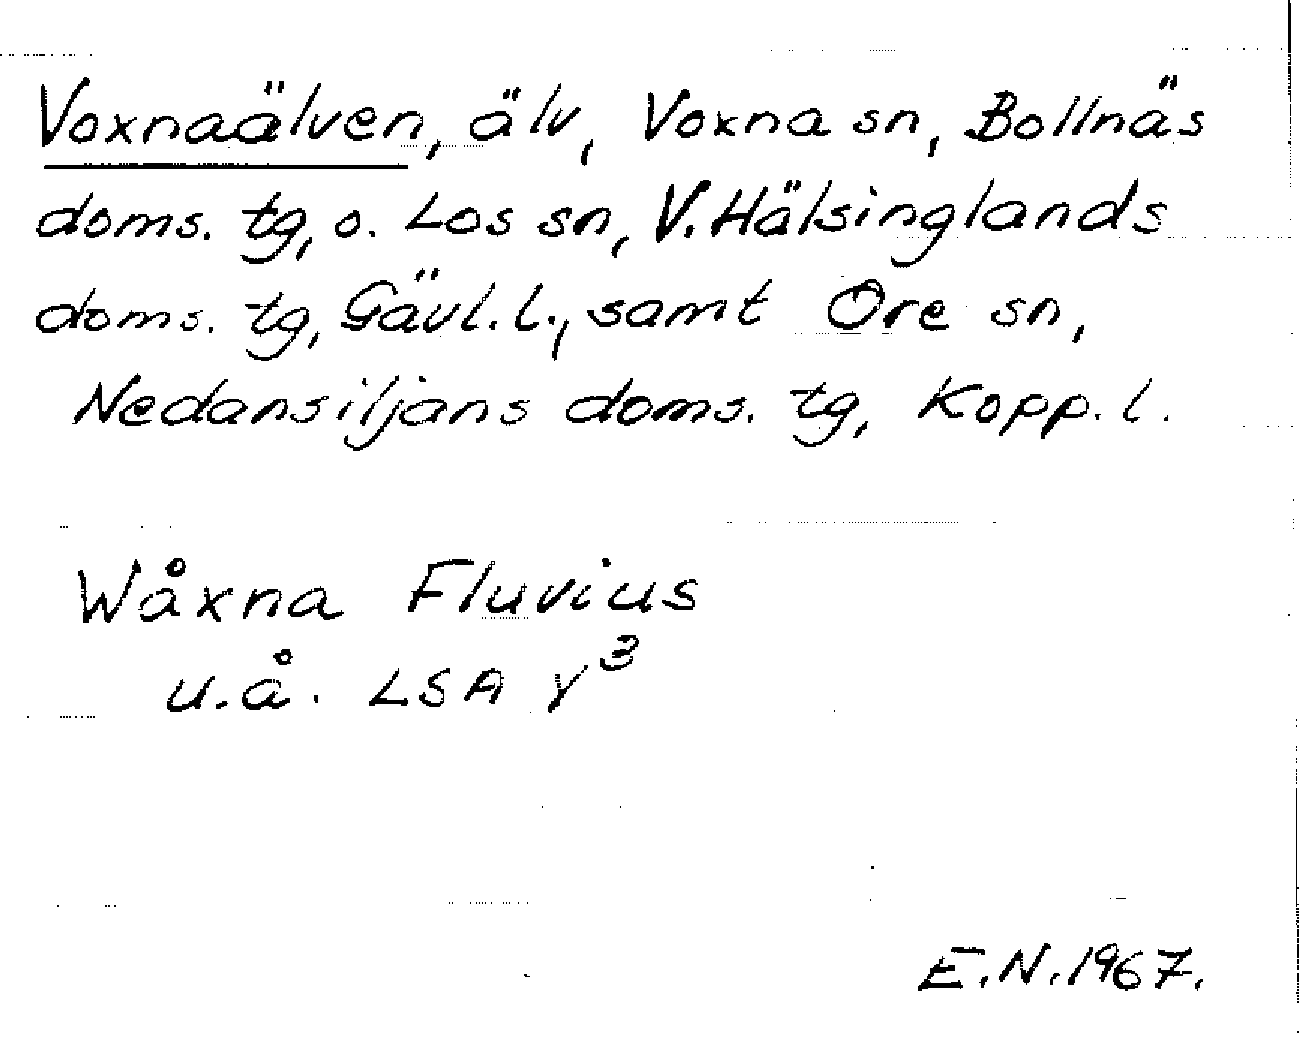 Voxnaälven, älv, Voxna sn, Bollnäs
doms. tg, o. Los sn, V. Hälsinglands
doms. tg, Gävl. l., samt Ore sn,
Nedansiljans doms. tg, Kopp. l.
Wåxna Fluvius
u.å. LSA γ³
E.N. 1967.